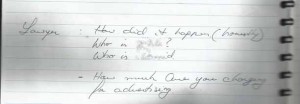 Lawyer : How did it happen (honestly)
Who is ?
Who is
- How much are you charging
for advertising